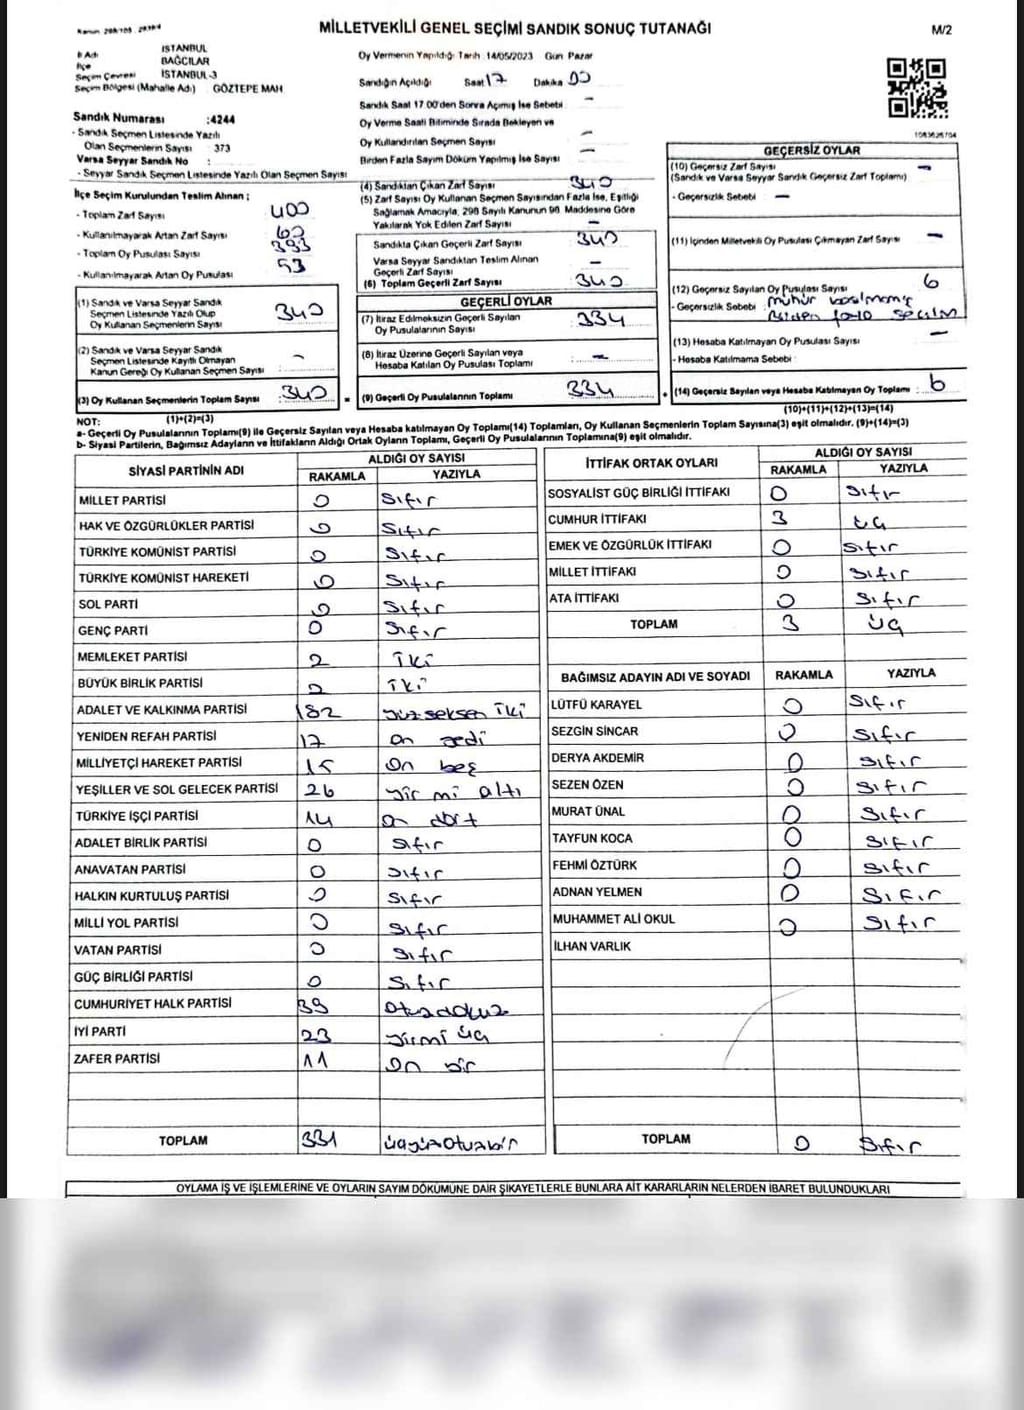 MİLLETVEKİLİ GENEL SEÇİMİ SANDIK SONUÇ TUTANAĞI
M/2
İl Adı İSTANBUL
İlçe BAĞCILAR
Seçim Çevresi İSTANBUL-3
Seçim Bölgesi (Mahalle Adı) GÖZTEPE MAH
Oy Vermenin Yapıldığı Tarih :14/05/2023 Gün Pazar
Sandığın Açıldığı Saat 17 Dakika 00
Sandık Saat 17.00'den Sonra Açılmış İse Sebebi -
Oy Verme Saati Bitiminde Sırada Bekleyen ve
Oy Kullandırılan Seçmen Sayısı -
Birden Fazla Sayım Döküm Yapılmış İse Sayısı -
Sandık Numarası :4244
- Sandık Seçmen Listesinde Yazılı
Olan Seçmenlerin Sayısı : 373
Varsa Seyyar Sandık No :
- Seyyar Sandık Seçmen Listesinde Yazılı Olan Seçmen Sayısı
İlçe Seçim Kurulundan Teslim Alınan ;
- Toplam Zarf Sayısı 400
- Kullanılmayarak Artan Zarf Sayısı 60
- Toplam Oy Pusulası Sayısı 393
- Kullanılmayarak Artan Oy Pusulası 53
(1) Sandık ve Varsa Seyyar Sandık
Seçmen Listesinde Yazılı Olup
Oy Kullanan Seçmenlerin Sayısı : 340
(2) Sandık ve Varsa Seyyar Sandık
Seçmen Listesinde Kayıtlı Olmayan
Kanun Gereği Oy Kullanan Seçmen Sayısı : -
(3) Oy Kullanan Seçmenlerin Toplam Sayısı : 340
(1)+(2)=(3)
(4) Sandıktan Çıkan Zarf Sayısı 340
(5) Zarf Sayısı Oy Kullanan Seçmen Sayısından Fazla İse, Eşitliği
Sağlamak Amacıyla, 298 Sayılı Kanunun 98. Maddesine Göre
Yakılarak Yok Edilen Zarf Sayısı -
Sandıkta Çıkan Geçerli Zarf Sayısı 340
Varsa Seyyar Sandıktan Teslim Alınan
Geçerli Zarf Sayısı -
(6) Toplam Geçerli Zarf Sayısı 340
GEÇERLİ OYLAR
(7) İtiraz Edilmeksizin Geçerli Sayılan
Oy Pusulalarının Sayısı : 334
(8) İtiraz Üzerine Geçerli Sayılan veya
Hesaba Katılan Oy Pusulası Toplamı : -
= (9) Geçerli Oy Pusulalarının Toplamı : 334
GEÇERSİZ OYLAR
(10) Geçersiz Zarf Sayısı -
(Sandık ve Varsa Seyyar Sandık Geçersiz Zarf Toplamı)
- Geçersizlik Sebebi : -
(11) İçinden Milletvekili Oy Pusulası Çıkmayan Zarf Sayısı -
(12) Geçersiz Sayılan Oy Pusulası Sayısı : 6
- Geçersizlik Sebebi : mühür basılmamış
Birden fazla seçim
(13) Hesaba Katılmayan Oy Pusulası Sayısı -
- Hesaba Katılmama Sebebi :
+ (14) Geçersiz Sayılan veya Hesaba Katılmayan Oy Toplamı : 6
(10)+(11)+(12)+(13)=(14)
NOT:
a- Geçerli Oy Pusulalarının Toplamı(9) ile Geçersiz Sayılan veya Hesaba katılmayan Oy Toplamı(14) Toplamları, Oy Kullanan Seçmenlerin Toplam Sayısına(3) eşit olmalıdır. (9)+(14)=(3)
b- Siyasi Partilerin, Bağımsız Adayların ve İttifakların Aldığı Ortak Oyların Toplamı, Geçerli Oy Pusulalarının Toplamına(9) eşit olmalıdır.
SİYASİ PARTİNİN ADI ALDIĞI OY SAYISI
RAKAMLA YAZIYLA
MİLLET PARTİSİ 0 Sıfır
HAK VE ÖZGÜRLÜKLER PARTİSİ 0 Sıfır
TÜRKİYE KOMÜNİST PARTİSİ 0 Sıfır
TÜRKİYE KOMÜNİST HAREKETİ 0 Sıfır
SOL PARTİ 0 Sıfır
GENÇ PARTİ 0 Sıfır
MEMLEKET PARTİSİ 2 İki
BÜYÜK BİRLİK PARTİSİ 2 İki
ADALET VE KALKINMA PARTİSİ 182 yüzseksen iki
YENİDEN REFAH PARTİSİ 17 on yedi
MİLLİYETÇİ HAREKET PARTİSİ 15 On beş
YEŞİLLER VE SOL GELECEK PARTİSİ 26 yirmi altı
TÜRKİYE İŞÇİ PARTİSİ 14 on dört
ADALET BİRLİK PARTİSİ 0 sıfır
ANAVATAN PARTİSİ 0 sıfır
HALKIN KURTULUŞ PARTİSİ 0 sıfır
MİLLİ YOL PARTİSİ 0 sıfır
VATAN PARTİSİ 0 sıfır
GÜÇ BİRLİĞİ PARTİSİ 0 sıfır
CUMHURİYET HALK PARTİSİ 39 otuzdokuz
İYİ PARTİ 23 yirmi üç
ZAFER PARTİSİ 11 On bir
TOPLAM 331 üçyüzotuzbir
İTTİFAK ORTAK OYLARI ALDIĞI OY SAYISI
RAKAMLA YAZIYLA
SOSYALİST GÜÇ BİRLİĞİ İTTİFAKI 0 Sıfır
CUMHUR İTTİFAKI 3 üç
EMEK VE ÖZGÜRLÜK İTTİFAKI 0 sıfır
MİLLET İTTİFAKI 0 sıfır
ATA İTTİFAKI 0 sıfır
TOPLAM 3 üç
BAĞIMSIZ ADAYIN ADI VE SOYADI RAKAMLA YAZIYLA
LÜTFÜ KARAYEL 0 Sıfır
SEZGİN SİNCAR 0 Sıfır
DERYA AKDEMİR 0 Sıfır
SEZEN ÖZEN 0 Sıfır
MURAT ÜNAL 0 Sıfır
TAYFUN KOCA 0 Sıfır
FEHMİ ÖZTÜRK 0 sıfır
ADNAN YELMEN 0 Sıfır
MUHAMMET ALİ OKUL 0 Sıfır
İLHAN VARLIK
TOPLAM 0 Sıfır
OYLAMA İŞ VE İŞLEMLERİNE VE OYLARIN SAYIM DÖKÜMÜNE DAİR ŞİKAYETLERLE BUNLARA AİT KARARLARIN NELERDEN İBARET BULUNDUKLARI